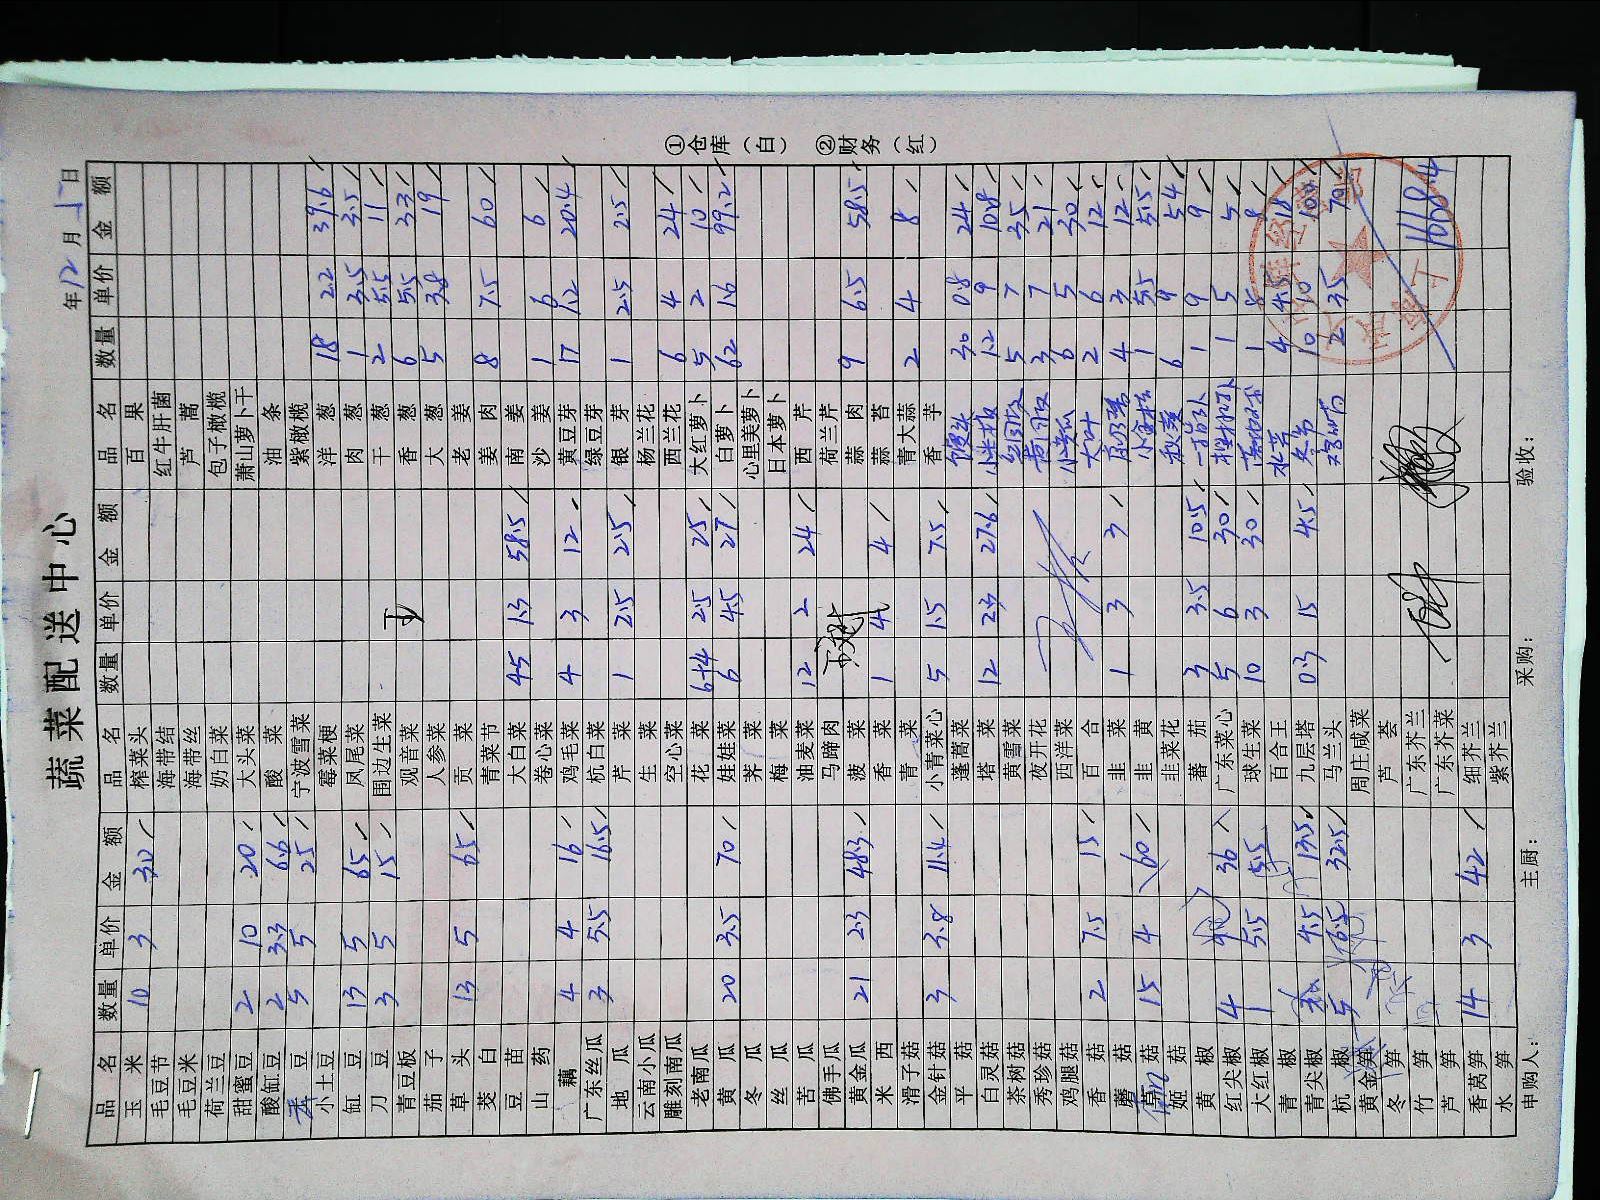 蔬菜配送中心
年12月15日
品名 数量 单价 金额 品名 数量 单价 金额 品名 数量 单价 金额
玉米 10 3 30 榨菜头 百果
毛豆节 海带结 红牛肝菌
毛豆米 海带丝 芦蒿
荷兰豆 奶白菜 包子橄榄
甜蜜豆 2 10 20 大头菜 萧山萝卜干
酸缸豆 2 3.3 6.6 酸菜 油条
豆 5 5 25 宁波雪菜 紫橄榄
小土豆 霉菜梗 洋葱 18 2.2 39.6
缸豆 13 5 65 凤尾菜 肉葱 1 3.5 3.5
刀豆 3 5 15 围边生菜 干葱 2 5.5 11
青豆板 观音菜 香葱 6 5.5 33
茄子 人参菜 大葱 5 3.8 19
草头 13 5 65 贡菜 老姜
茭白 青菜节 姜肉 8 7.5 60
豆苗 大白菜 45 1.3 58.5 南姜
山药 卷心菜 沙姜 1 6 6
藕 4 4 16 鸡毛菜 4 3 12 黄豆芽 17 1.2 20.4
广东丝瓜 3 5.5 16.5 杭白菜 绿豆芽
地瓜 芹菜 1 2.5 2.5 银芽 1 2.5 2.5
云南小瓜 生菜 杨兰花
雕刻南瓜 空心菜 西兰花 6 4 24
老南瓜 花菜 6+4 2.5 25 大红萝卜 5 2 10
黄瓜 20 3.5 70 娃娃菜 6 4.5 27 白萝卜 62 1.6 99.2
冬瓜 荠菜 心里美萝卜
丝瓜 梅菜 日本萝卜
苦瓜 油麦菜 12 2 24 西芹
佛手瓜 马蹄肉 荷兰芹
黄金瓜 21 2.3 48.3 菠菜 蒜肉 9 6.5 58.5
米西 香菜 1 4 4 蒜苔
滑子菇 青菜 青大蒜 2 4 8
金针菇 3 3.8 11.4 小青菜心 5 1.5 7.5 香芋
平菇 蓬蒿菜 馒头 30 0.8 24
白灵菇 塔菜 12 2.3 27.6 小米椒 1.2 9 10.8
茶树菇 黄雪菜 5 7 35
秀珍菇 夜开花 黄圆椒 3 7 21
鸡腿菇 西洋菜 小黄瓜 6 5 30
香菇 2 7.5 15 百合 大叶 2 6 12
蘑菇 韭菜 1 3 3 4 3 12
草菇 15 4 60 韭黄 小金桔 1 5.5 5.5
姬菇 韭菜花 秋葵 6 9 54
黄椒 蕃茄 3 3.5 10.5 1 9 9
红尖椒 4 36 广东菜心 5 6 30 樱桃萝卜 1 5 5
大红椒 1 5.5 5.5 球生菜 10 3 30 1 8 8
青椒 百合王 水芹 4 4.5 18
青尖椒 4.5 13.5 九层塔 0.3 15 4.5 冬笋 10 10 100
杭椒 5 6.5 32.5 马兰头 2 35 70
黄金笋 周庄咸菜
冬笋 芦荟
竹笋 广东芥兰 1668.4
芦笋 广东芥菜
香莴笋 14 3 42 细芥兰
水笋 紫芥兰
申购人： 主厨： 采购： 验收：
①仓库（白） ②财务（红）